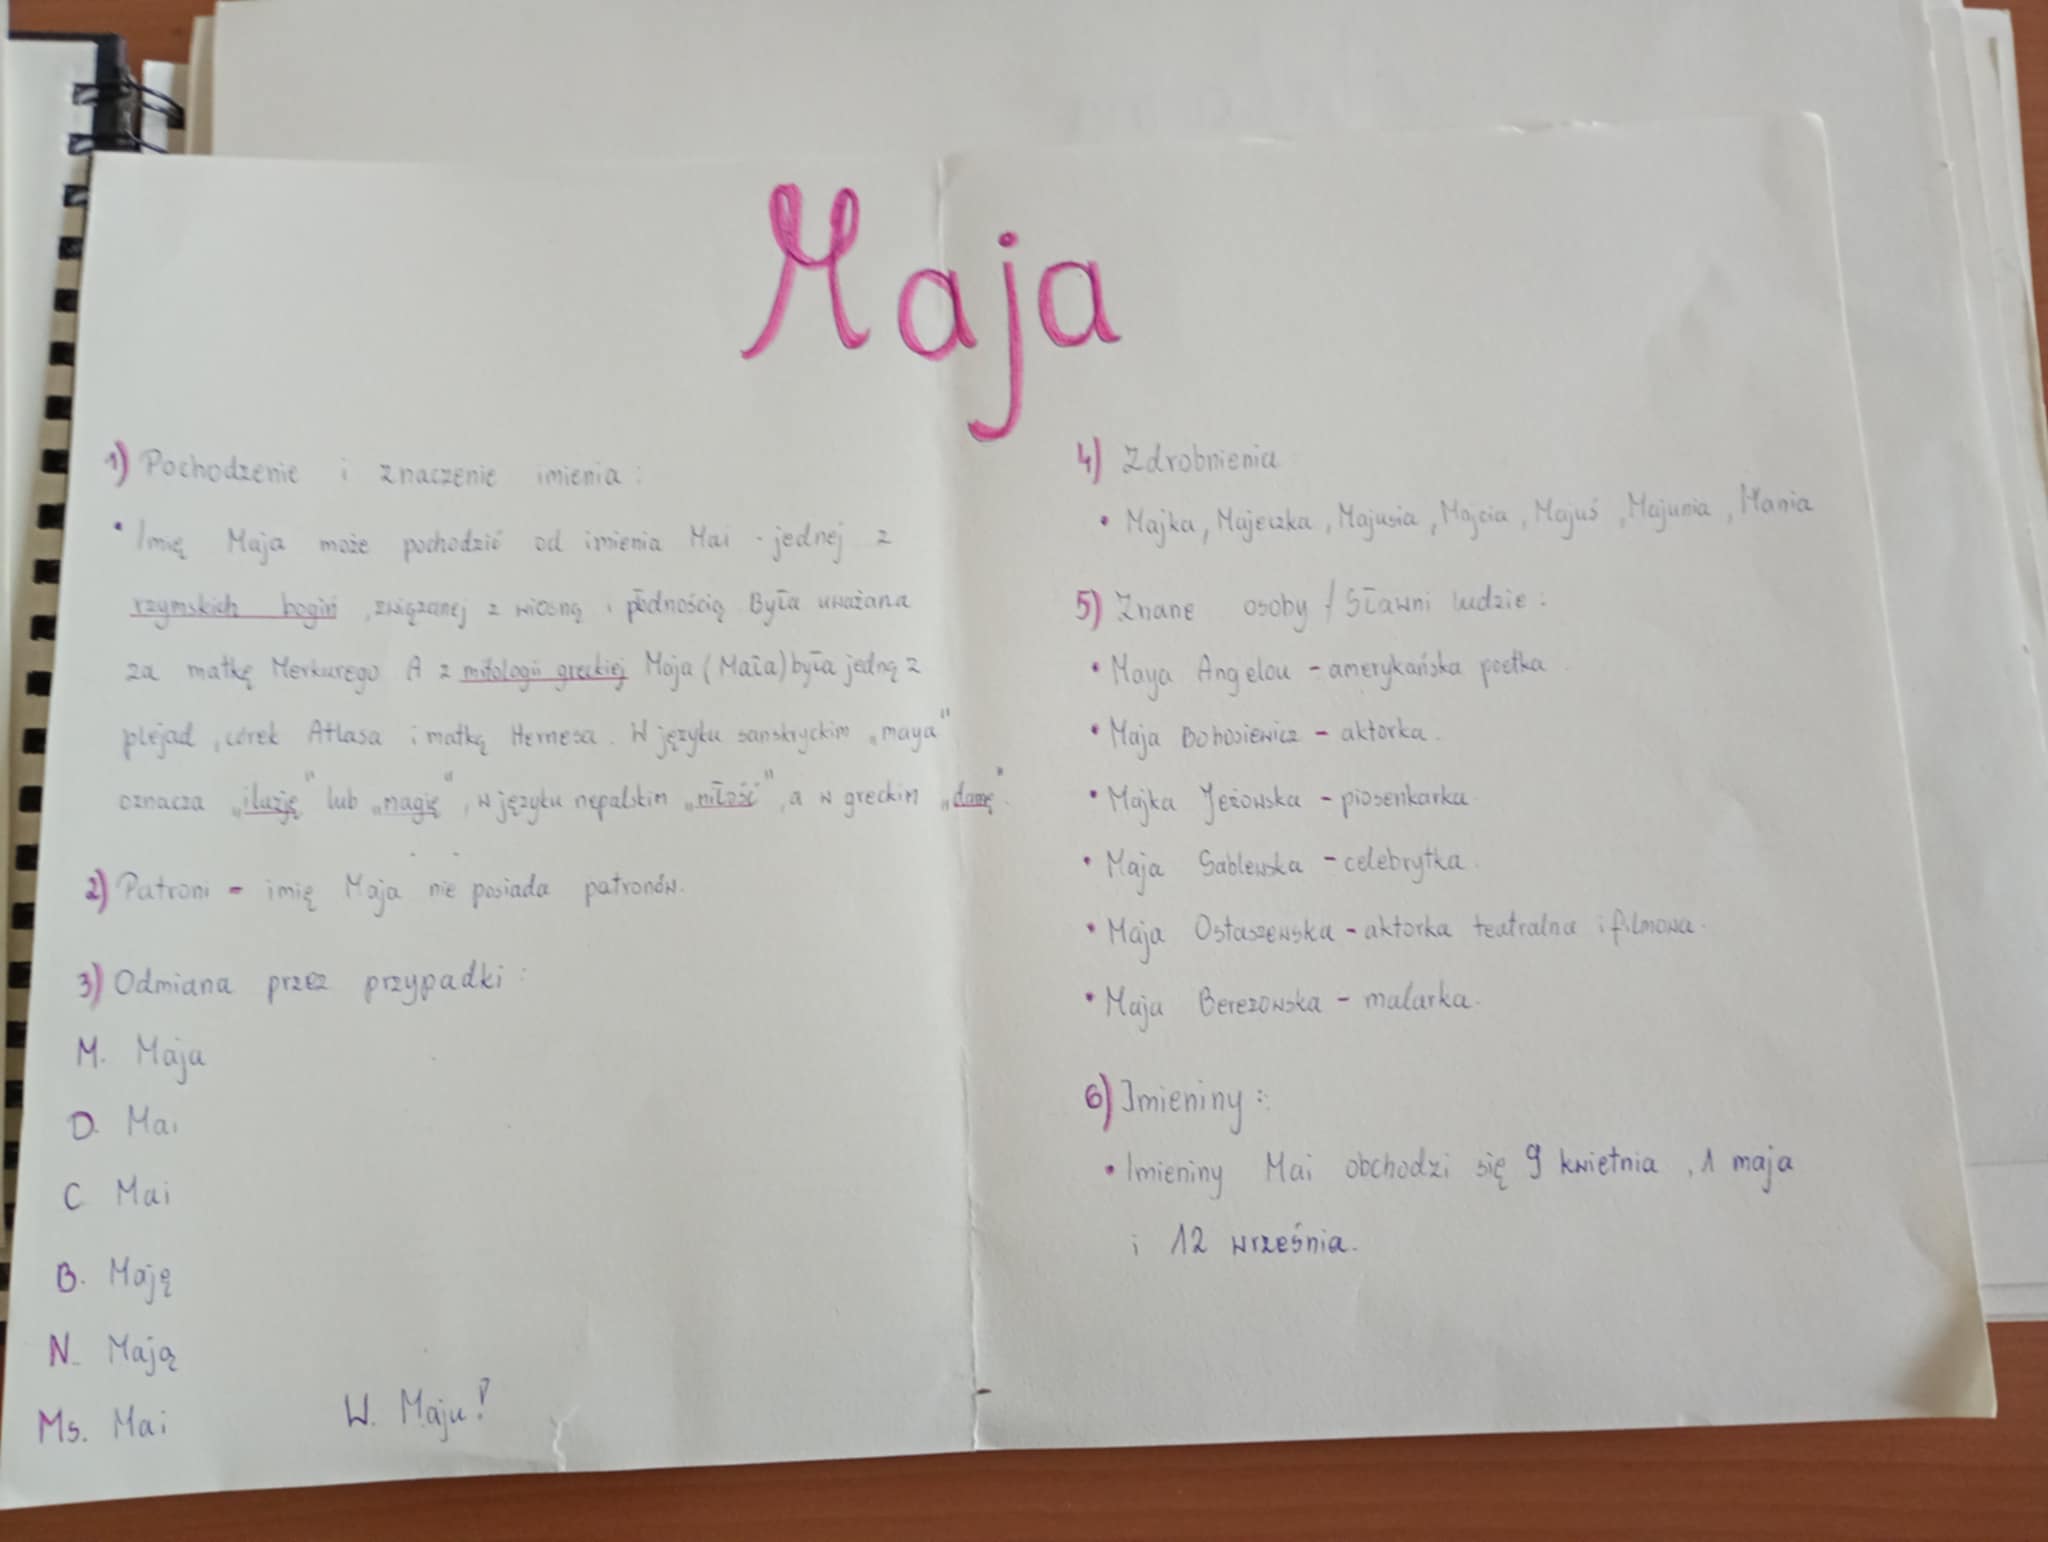 Maja
1) Pochodzenie i znaczenie imienia:
• Imię Maja może pochodzić od imienia Mai - jednej z
rzymskich bogiń, związanej z wiosną i płodnością. Była uważana
za matkę Merkurego. A z mitologii greckiej Maja (Maia) była jedną z
plejad, córek Atlasa i matką Hermesa. W języku sanskryckim „maya”
oznacza „iluzję” lub „magię”, w języku nepalskim „miłość”, a w greckim „damę”.
2) Patroni - imię Maja nie posiada patronów.
3) Odmiana przez przypadki:
M. Maja
D. Mai
C. Mai
B. Maję
N. Mają
Ms. Mai
W. Maju!
4) Zdrobnienia
• Majka, Majeczka, Majusia, Majcia, Majuś, Majunia, Mania
5) Znane osoby / Sławni ludzie:
• Maya Angelou - amerykańska poetka.
• Maja Bohosiewicz - aktorka.
• Majka Jeżowska - piosenkarka.
• Maja Sablewska - celebrytka.
• Maja Ostaszewska - aktorka teatralna i filmowa.
• Maja Berezowska - malarka.
6) Imieniny:
• Imieniny Mai obchodzi się 9 kwietnia, 1 maja
i 12 września.